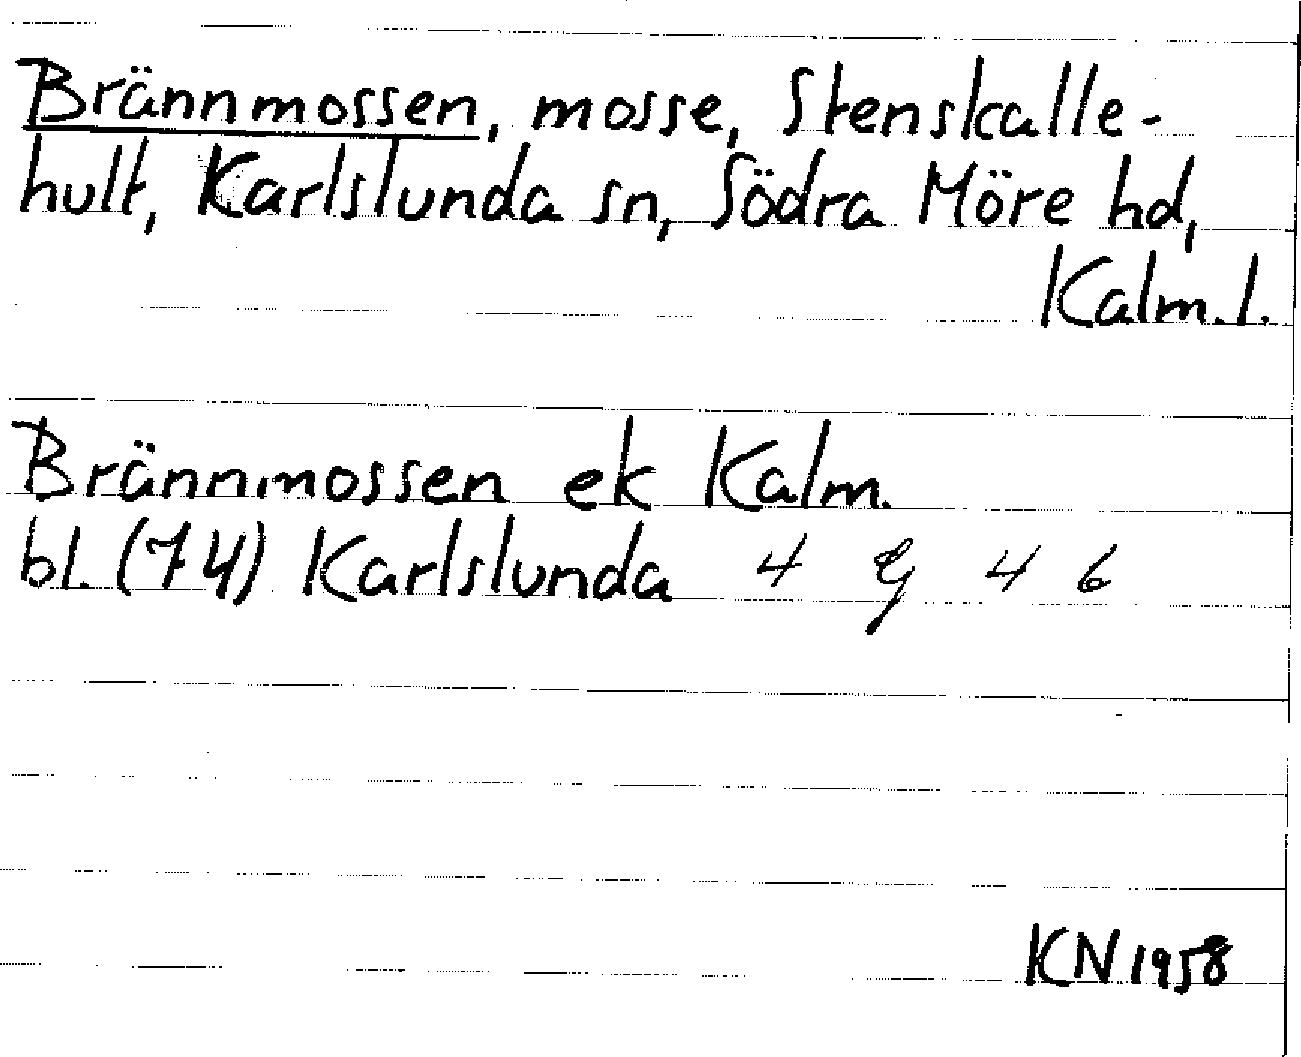 Brännmossen, mosse, Stenskalle-
hult, Karlslunda sn, Södra Möre hd,
Kalm. l.
Brännmossen ek Kalm.
bl. (74) Karlslunda 4 g 4 6
KN 1958